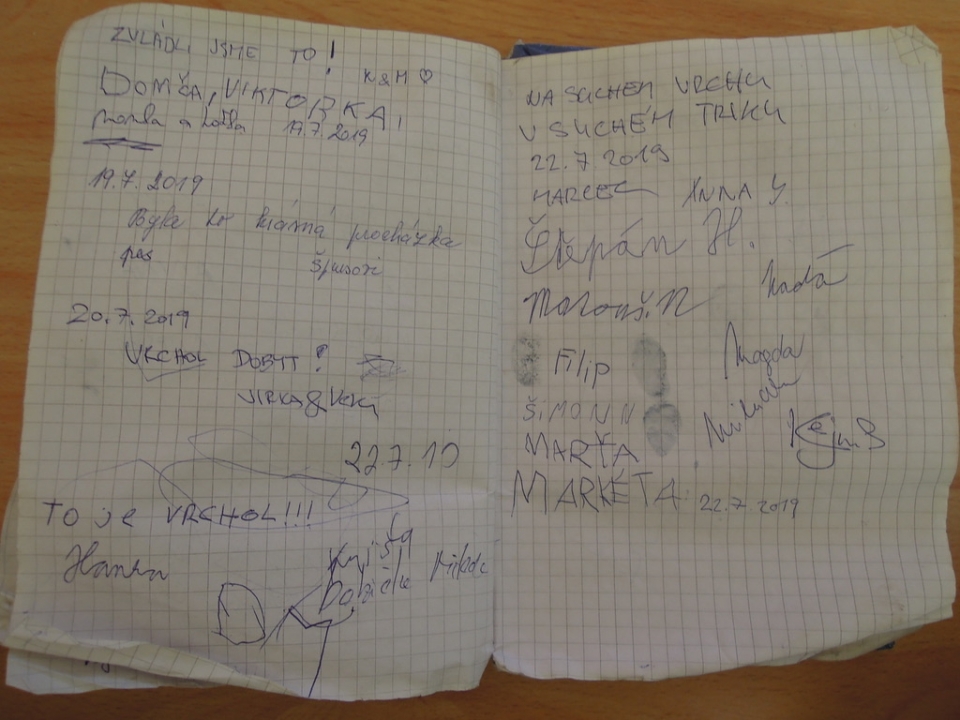 ZVLÁDLI JSME TO!
K & M ♡
DOMČA, VIKTORKA,
19.7.2019
19.7. 2019
Byla to krásná procházka
pas
20.7.2019
VRCHOL DOBYT!
JIRKA &
22.7.19
To je VRCHOL!!!
Hanka
NA SUCHÉM VRCHU
V SUCHÉM TRIKU
22.7 2019
MARCEL ANNA Y.
Štěpán H.
Matouš.N
Filip
Magda
ŠIMON N
MARŤA
MARKÉTA 22.7.2019